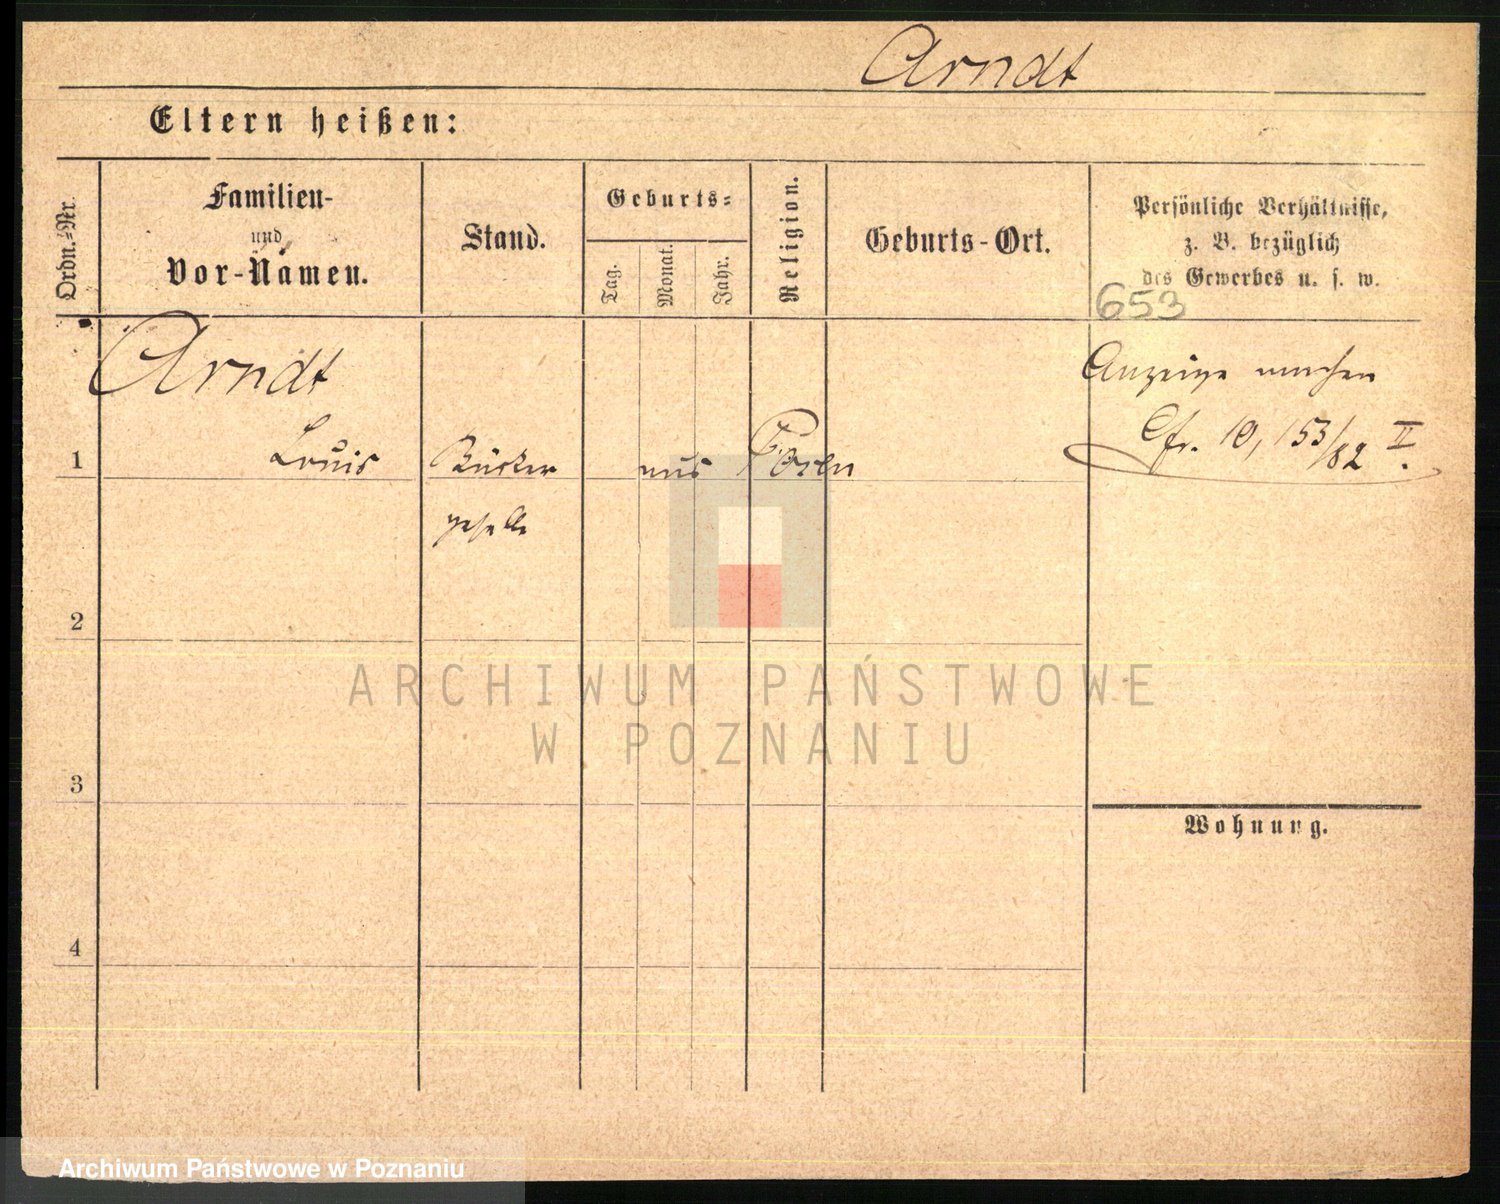 Arndt
Eltern heißen:
Ordn.-Nr.
Familien-
und
Vor-Namen.
Stand.
Geburts-
Tag.
Monat.
Jahr.
Religion.
Geburts-Ort.
Persönliche Verhältnisse,
z. B. bezüglich
des Gewerbes u. s. w.
653
Arndt
Anzeige machen
Cfr. 10,153/82 II.
1 Louis Bäcker aus
geselle
2
ARCHIWUM PAŃSTWOWE
W POZNANIU
3
Wohnung.
4
Archiwum Państwowe w Poznaniu